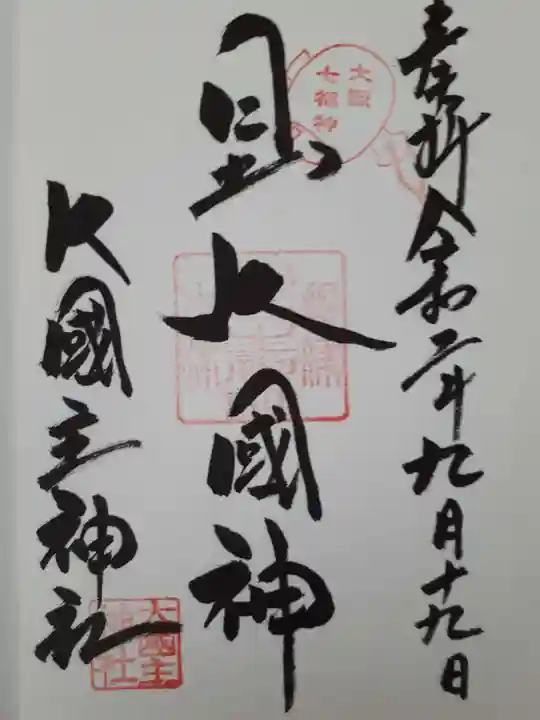 奉拝 令和二年九月十九日
大阪
七福神
大國神
大國主神社
大國主
神社